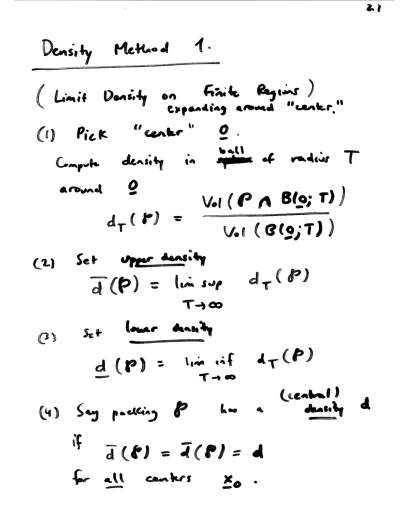 2.1
Density Method 1.
( Limit Density on Finite Regions )
expanding around "center."
(1) Pick "center" 0.
Compute density in ball of radius T
around 0
d_T(P) = Vol(P ∩ B(0; T)) / Vol(B(0; T))
(2) Set upper density
d̅(P) = lim sup d_T(P)
T→∞
(3) Set lower density
d̲(P) = lim inf d_T(P)
T→∞
(4) Say packing P has a (central) density d
if
d̅(P) = d̅(P) = d
for all centers x₀.